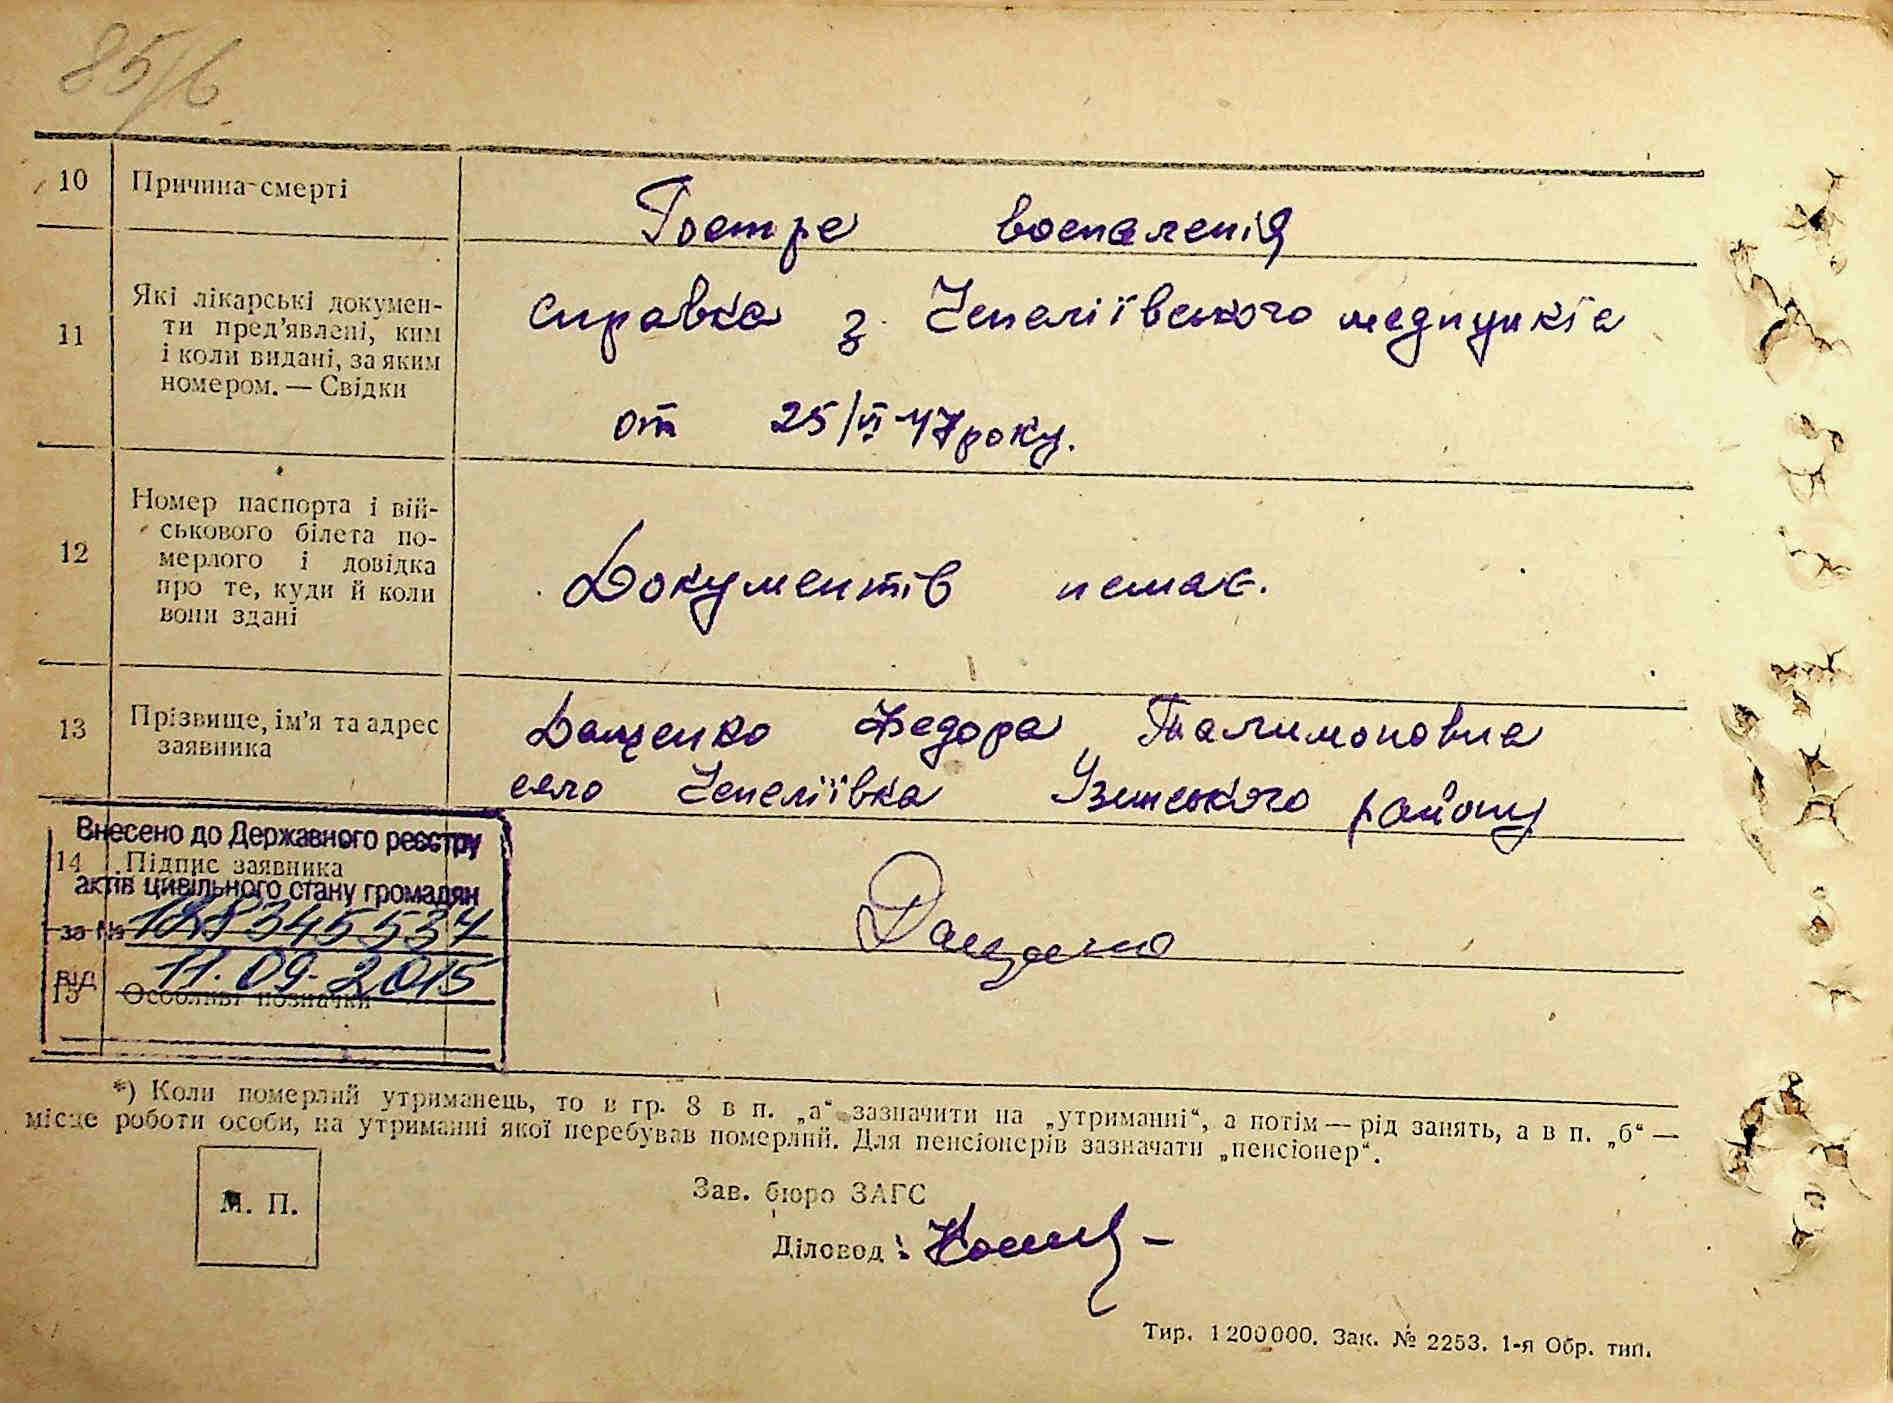 85/6
10 Причина смерті Гостре воспаленія
11 Які лікарські докумен-
ти пред'явлені, ким
і коли видані, за яким
номером. — Свідки
справка з Чепеліївського медпункта
от 25/VI 47 року.
12 Номер паспорта і вій-
ськового білета по-
мерлого і довідка
про те, куди й коли
вони здані
Документів немає.
13 Прізвище, ім'я та адрес
заявника
Дащенко Федора Талимоновна
село Чепеліївка Узинського району
Внесено до Державного реєстру
14 Підпис заявника Дащенко
актів цивільного стану громадян
за №
від 11.09.2015
15 Особливі позначки
*) Коли померлий утриманець, то в гр. 8 в п. „а“ зазначити на „утриманні“, а потім — рід занять, а в п. „б“ —
місце роботи особи, на утриманні якої перебував померлий. Для пенсіонерів зазначати „пенсіонер“.
М. П.
Зав. бюро ЗАГС
Діловод:
Тир. 1200000. Зак. № 2253. 1-я Обр. тип.